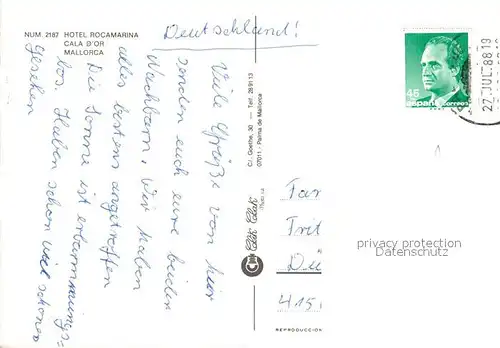 NUM. 2187 HOTEL ROCAMARINA
CALA D'OR
MALLORCA
Deutschland!
Viele Grüße von hier
senden euch eure beiden
Nachbarn. Wir haben
alles bestens angetroffen
Die Sonne ist erbarmungs=
los. Haben schon viel schönes
gesehen
C/. Goethe, 30 — Telf. 289113
07011 - Palma de Mallorca
Click Clack
45
españa correos
27.JUL.88 19
Fam
Frit
Du
415
privacy protection
Datenschutz
REPRODUCCION